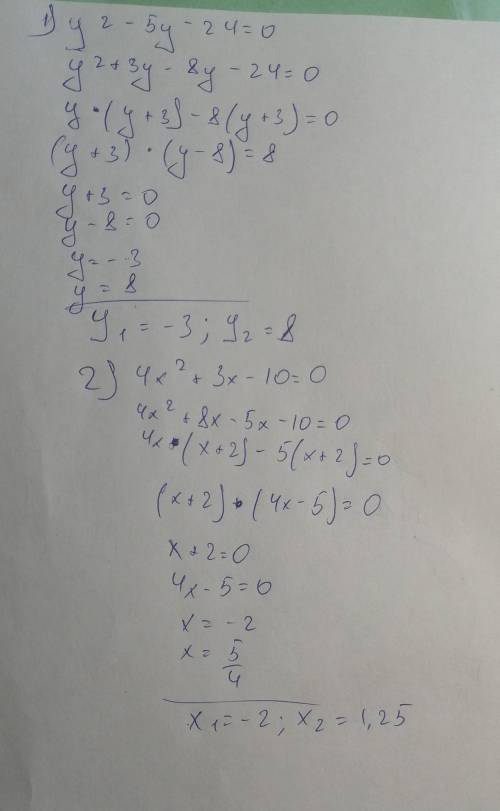 1) y² - 5y - 24 = 0
y² + 3y - 8y - 24 = 0
y • (y + 3) - 8(y + 3) = 0
(y + 3) • (y - 8) = 8
y + 3 = 0
y - 8 = 0
y = - 3
y = 8
y₁ = -3 ; y₂ = 8
2) 4x² + 3x - 10 = 0
4x² + 8x - 5x - 10 = 0
4x • (x + 2) - 5(x + 2) = 0
(x + 2) • (4x - 5) = 0
x + 2 = 0
4x - 5 = 0
x = - 2
x = 5/4
x₁ = -2 ; x₂ = 1,25